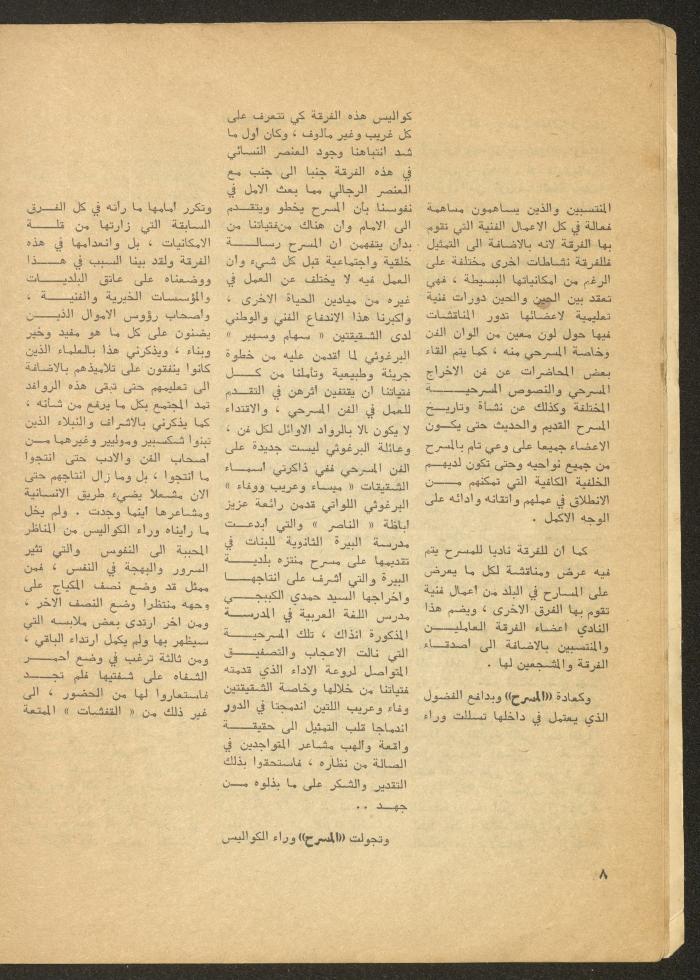 المنتسبين والذين يساهمون مساهمة
فعالة في كل الاعمال الفنية التي تقوم
بها الفرقة لانه بالاضافة الى التمثيل
فللفرقة نشاطات اخرى مختلفة على
الرغم من امكانياتها البسيطة ، فهي
تعقد بين الحين والحين دورات فنية
تعليمية لاعضائها تدور المناقشات
فيها حول لون معين من الوان الفن
وخاصة المسرحي منه ، كما يتم القاء
بعض المحاضرات عن فن الاخراج
المسرحي والنصوص المسرحيـــة
المختلفة وكذلك عن نشأة وتاريـخ
المسرح القديم والحديث حتى يكـون
الاعضاء جميعا على وعي تام بالمسرح
من جميع نواحيه وحتى تكون لديهـم
الخلفية الكافية التي تمكنهم مــن
الانطلاق في عملهم واتقانه وادائه على
الوجه الاكمل .
كما ان للفرقة ناديا للمسرح يتم
فيه عرض ومناقشة لكل ما يعرض
على المسارح في البلد من اعمال فنية
تقوم بها الفرق الاخرى ، ويضم هذا
النادي اعضاء الفرقة العامليـــن
والمنتسبين بالاضافة الى اصدقــاء
الفرقة والمشجعين لها .
وكعادة ((المسرح)) وبدافع الفضول
الذي يعتمل في داخلها تسللت وراء
كواليس هذه الفرقة كي تتعرف على
كل غريب وغير مألوف ، وكان اول ما
شد انتباهنا وجود العنصر النسائي
في هذه الفرقة جنبا الى جنب مع
العنصر الرجالي مما بعث الامل في
نفوسنا بأن المسرح يخطو ويتقـدم
الى الامام وأن هناك من فتياتنا من
بدأن يتفهمن ان المسرح رسالــة
خلقية واجتماعية قبل كل شيء وأن
العمل فيه لا يختلف عن العمل في
غيره من ميادين الحياة الاخرى ،
وأكبرنا هذا الاندفاع الفني والوطني
لدى الشقيقتين « سهام وسهير »
البرغوثي لما اقدمن عليه من خطوة
جريئة وطبيعية وتأملنا من كــل
فتياتنا ان يقتفين اثرهن في التقـدم
للعمل في الفن المسرحي ، والاقتداء
لا يكون الا بالرواد الاوائل لكل فن ،
وعائلة البرغوثي ليست جديدة على
الفن المسرحي ففي ذاكرتي اسمـاء
الشقيقات « ميساء وعريب ووفاء »
البرغوثي اللواتي قدمن رائعة عزيز
اباظة « الناصر » والتي ابدعــت
مدرسة البيرة الثانوية للبنات في
تقديمها على مسرح منتزه بلديــة
البيرة والتي اشرف على انتاجهــا
واخراجها السيد حمدي الكببجـي
مدرس اللغة العربية في المدرســة
المذكورة انذاك ، تلك المسرحيــة
التي نالت الاعجاب والتصفيــق
المتواصل لروعة الاداء الذي قدمته
فتياتنا من خلالها وخاصة الشقيقتين
وفاء وعريب اللتين اندمجتا في الدور
اندماجا قلب التمثيل الى حقيقــة
واقعة والهب مشاعر المتواجدين في
الصالة من نظاره ، فاستحقوا بذلك
التقدير والشكر على ما بذلوه مــن
جهــد ..
وتجولت ((المسرح)) وراء الكواليس
وتكرر امامها ما رأته في كل الفــرق
السابقة التي زارتها من قلــــة
الامكانيات ، بل وانعدامها في هذه
الفرقة ولقد بينا السبب في هـــذا
ووضعناه على عاتق البلديـــات
والمؤسسات الخيرية والفنيـــة ،
واصحاب رؤوس الاموال الذيــن
يضنون على كل ما هو مفيد وخير
وبناء ، ويذكرني هذا بالعلماء الذين
كانوا ينفقون على تلاميذهم بالاضافة
الى تعليمهم حتى تبقى هذه الروافد
تمد المجتمع بكل ما يرفع من شأنه ،
كما يذكرني بالاشراف والنبلاء الذين
تبنوا شكسبير وموليير وغيرهما مــن
اصحاب الفن والادب حتى انتجوا
ما انتجوا ، بل وما زال انتاجهم حتى
الان مشعلا يضيء طريق الانسانية
ومشاعرها اينما وجدت . ولم يخل
ما رأيناه وراء الكواليس من المناظر
المحببة الى النفوس والتي تثير
السرور والبهجة في النفس ، فمن
ممثل قد وضع نصف المكياج على
وجهه منتظرا وضع النصف الاخر ،
ومن اخر ارتدى بعض ملابسه التي
سيظهر بها ولم يكمل ارتداء الباقي ،
ومن ثالثة ترغب في وضع احمــر
الشفاه على شفتيها فلم تجــــد
فاستعاروا لها من الحضور ، الى
غير ذلك من « القفشات » الممتعة
٨